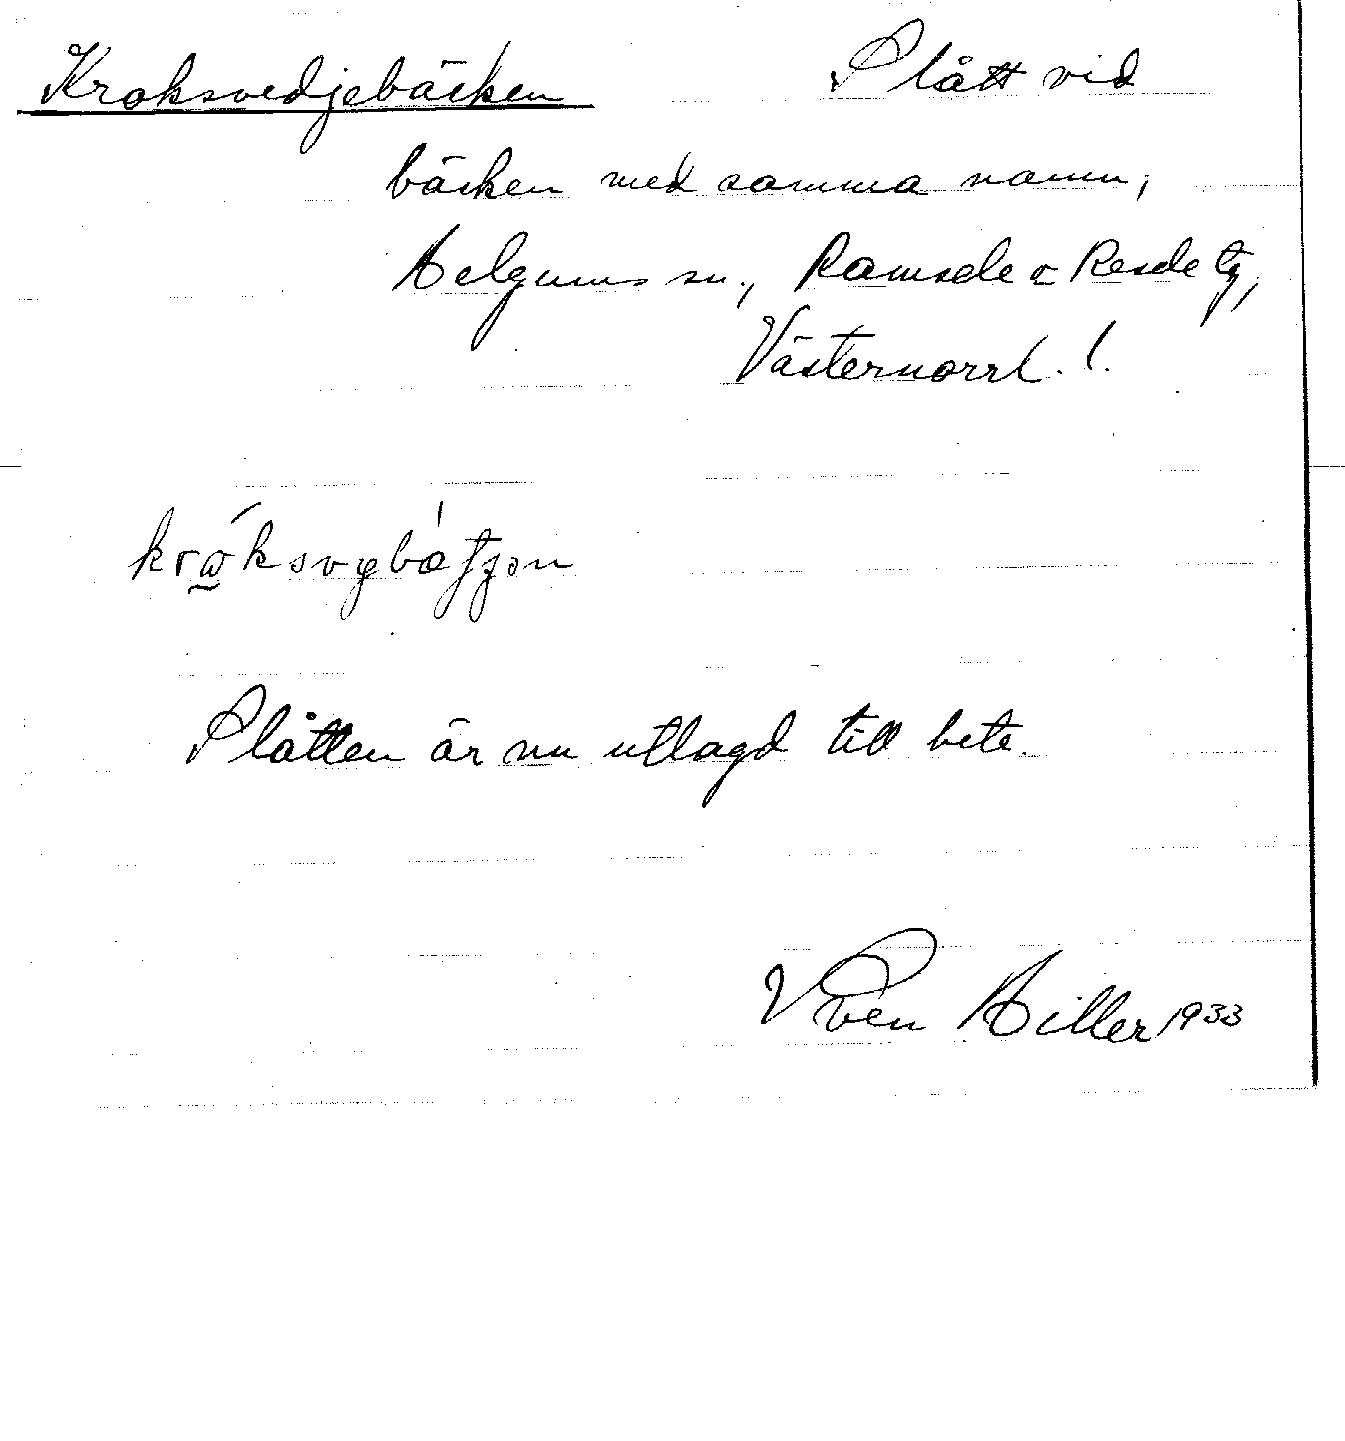 Kroksvedjebäcken Slått vid
bäcken med samma namn,
Helgums sn., Ramsele o Resele tg,
Västernorrl. l.
Slåtten är nu utlagd till bete.
Sven Hiller 1933